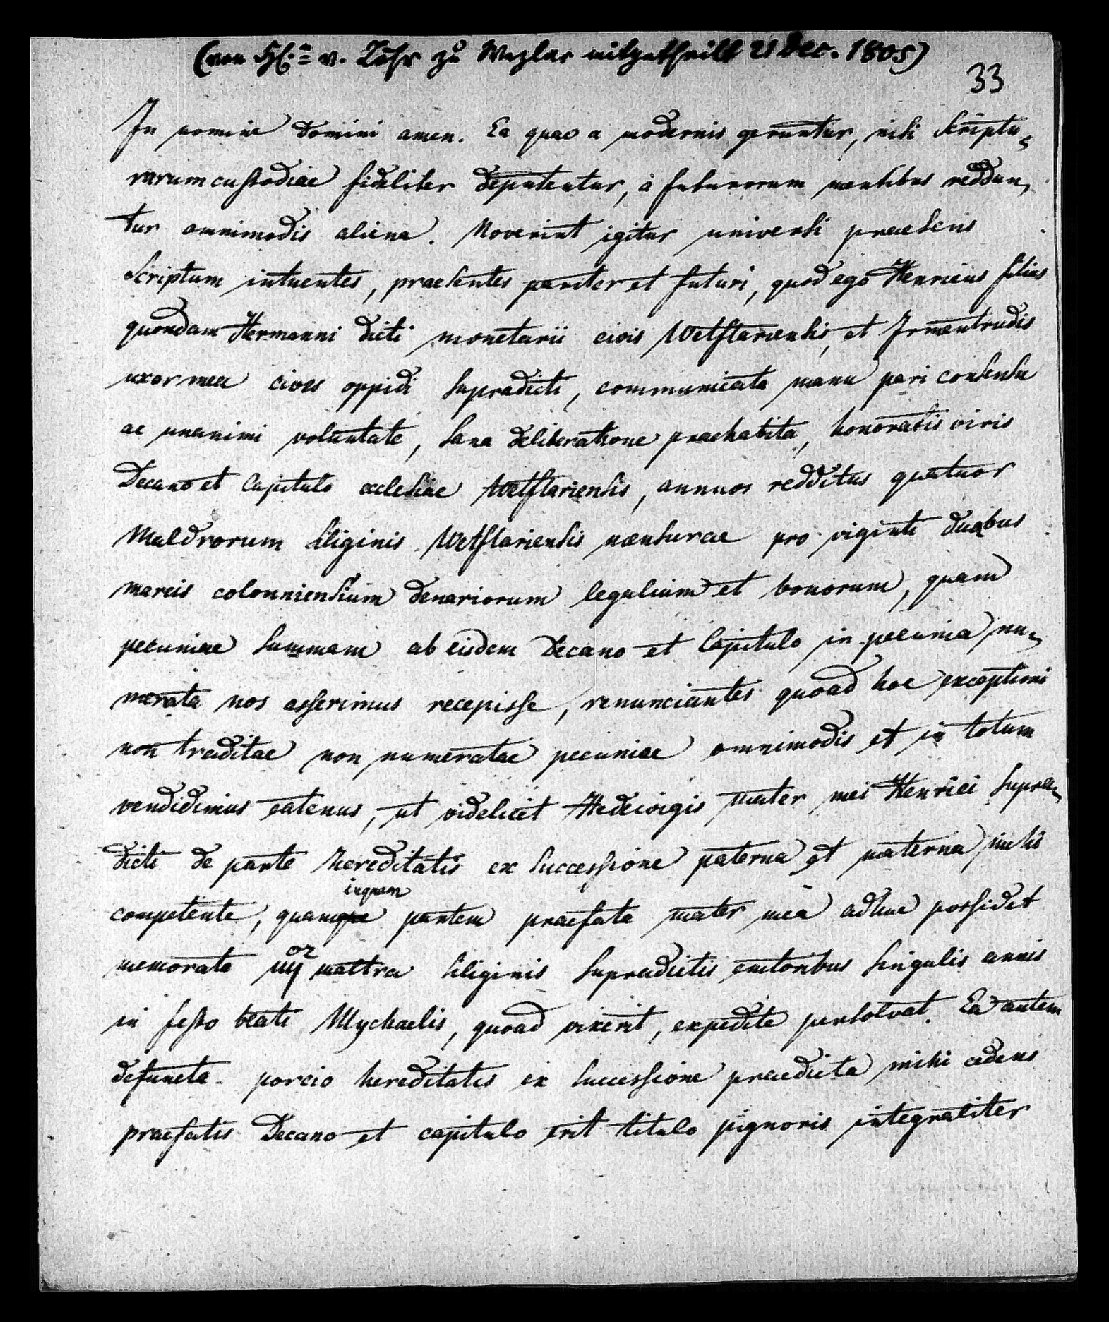 (von H: v. Löhr zu Wezlar mitgetheilt 21 Dec. 1805)
33
In nomine Domini amen. Ea quae a modernis geruntur, nisi scriptu,
rarum custodiae fideliter deputentur, à futurorum mentibus reddun,
tur omnimodis aliena. Noverint igitur universi praesens
scriptum intuentes, praesentes pariter et futuri, quod ego Henricus filius
quondam Hermanni dicti monetarii civis Wetflariensis, et Irmentrudis
uxor mea cives oppidi supradicti, communicata manu pari consensu
ac unanimi voluntate, sana deliberatione praehabita, honoratis viris
Decano et Capitulo ecclesiae Wetflariensis, annuos redditus quatuor
Maldrorum siliginis Wetflariensis mensurae pro viginti duabus
marcis colonniensium denariorum legalium et bonorum, quam
pecuniae summam ab eisdem Decano et Capitulo in pecunia nu,
merata nos asserimus recepisse, renunciantes quoad hoc exceptioni
non traditae non numeratae pecuniae omnimodis et in totum
vendidimus eatenus, ut videlicet Hedewigis mater mei Henrici supra,
dicti de parte hereditatis ex successione paterna et materna mihi
inquam
competente, quam partem praefata mater mea adhuc possidet
memorato iiijor maltra siliginis supradictis emtoribus singulis annis
in festo beati Mychaelis, quoad vixerit, expedite persolvat. Ea autem
defuncta porcio hereditatis ex successione praedicta mihi cedens
praefatis Decano et capitulo erit titulo pignoris integraliter